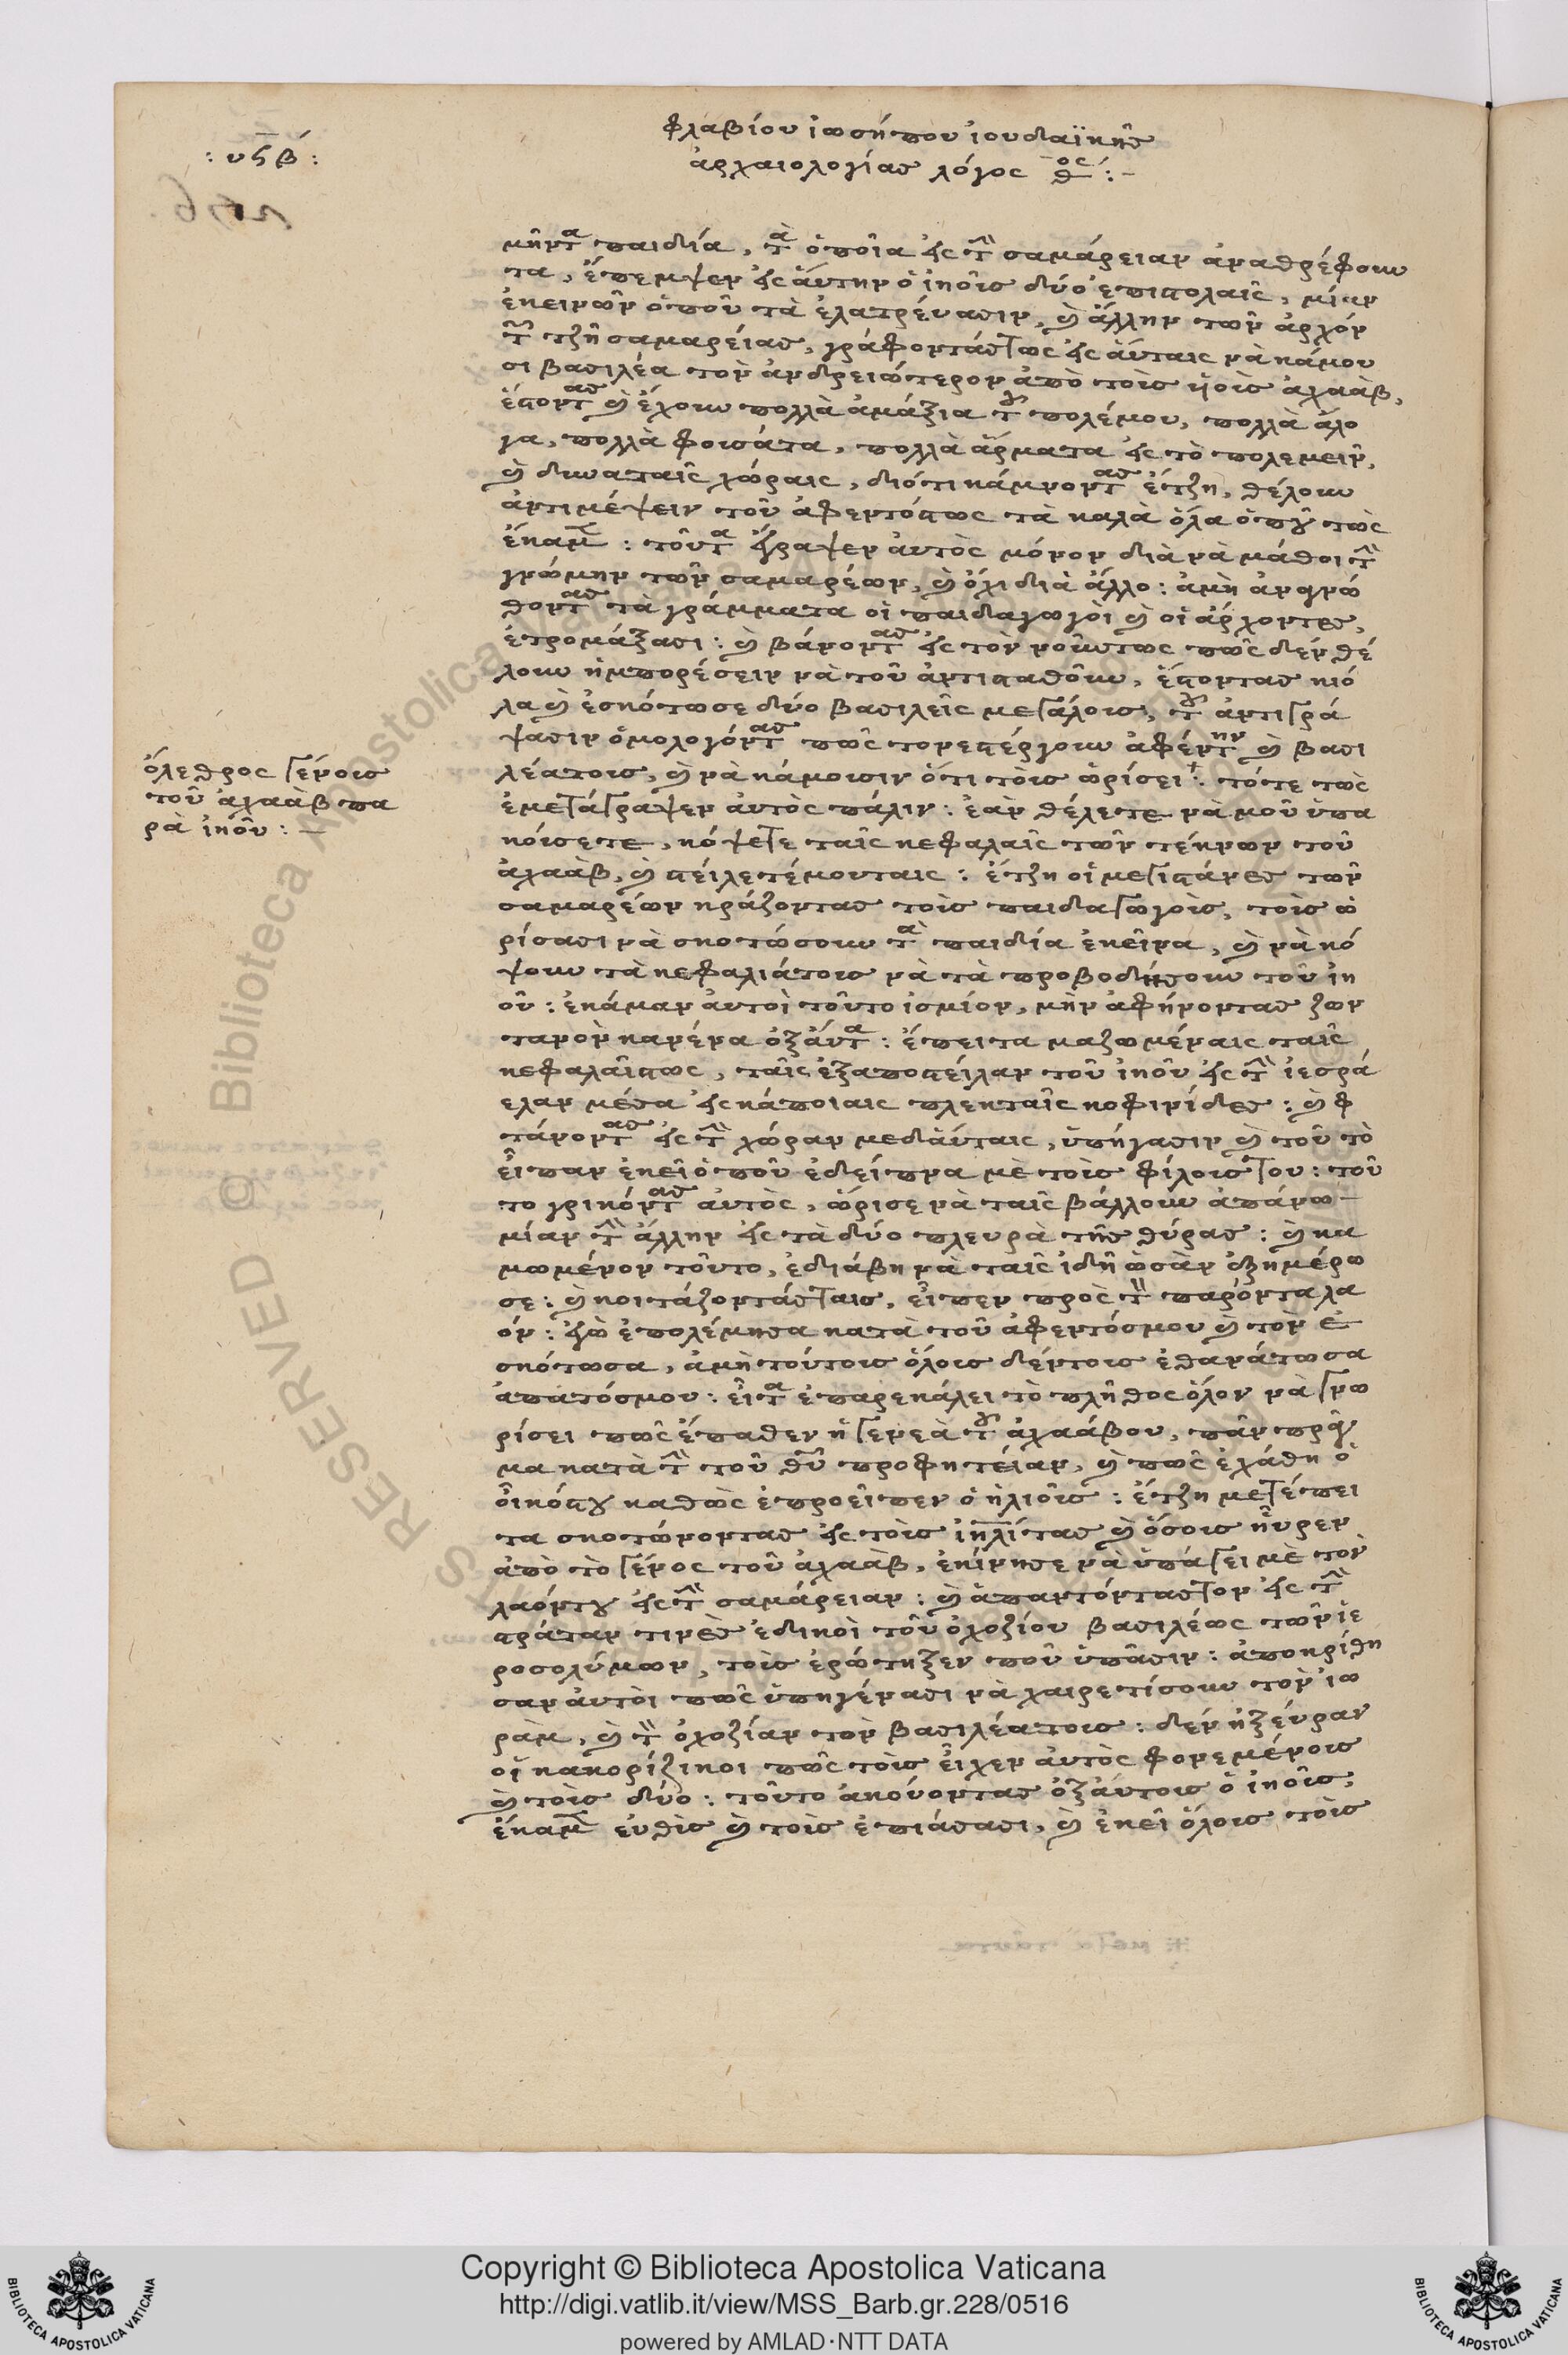 : υϟβ :
φλαβίου ἰωσήπου ἰουδαϊκῆς
ἀρχαιολογίας λόγος θος : –
μῆντα παιδία, τὰ ὁποῖα εἰς τὴν σαμάρειαν ἀναθρέφουν
τα, ἔπεμψεν εἰς ἄυτην ὁ ἰηοῦς δύο ἐπιστολαῖς, μίαν
ἐκεινῶν ὁποῦ τὰ ἐλατρέυασιν, καὶ ἄλλην τῶν ἀρχόν
των τζῆ σαμαρείας, γράφοντάς τως εἰς ἄυταις νὰ κάμου
σι βασιλέα τὸν ἀνδρειώτερον ἀπὸ τοὶς ὑοὶς ἀχαὰβ,
ἔστοντας καὶ ἔχουν πολλὰ ἁμάξια τοῦ πολέμου, πολλὰ ἄλο
γα, πολλὰ φουσάτα, πολλὰ ἄρματα εἰς τὸ πολεμεῖν,
καὶ δυναταῖς χώραις, διότι κάμνοντας ἔτζη, θέλουν
ἀντιμέψειν τοῦ ἀφεντόστως τὰ καλὰ ὅλα ὁποῦ τὼς
ἔκαμεν : τοῦτα ἔγραψεν ἀυτὸς μόνον διὰ νὰ μάθοι τὴν
γνώμην τῶν σαμαρέων, καὶ ὄχι διὰ ἄλλο : ἀμὴ ἀνα
θοντας τὰ γράμματα οἱ παιδαγωγοὶ καὶ οἱ ἄρχοντες,
ἐτρομάξασι : καὶ βάνοντας εἰς τὸν νοῦντως πῶς δὲν θέ
λουν ἡμπορέσειν νὰ τοῦ ἀντισταθοῦν, ἔστοντας κιό
λα καὶ ἐσκότωσε δύο βασιλεῖς μεγάλους, τοῦ ἀντιγρά
ψασιν ὁμολογόντας πῶς τονεστέργουν ἀφέντην καὶ βασι
λέατους, καὶ νὰ κάμουσιν ὅτι τοὶς ὡρίσει : τότε τὼς
ἐμεταγραψεν ἀυτὸς πάλιν : ἐὰν θέλετε νὰ μοῦ ὑπα
κόισετε, κόψετε ταῖς κεφαλαῖς τῶν τέκνων τοῦ
ἀχαὰβ, καὶ στείλετέμουταις : ἔτζη οἱ μεγιστάνες τῶν
σαμαρέων κράζοντας τοὶς παιδαγωγοὶς, τοὶς ὡ
ρίσασι νὰ σκοτώσουν τὰ παιδία ἐκεῖνα, καὶ νὰ κό
ψουν τὰ κεφαλιάτους νὰ τὰ προβοδήσουν τοῦ ἰη
οῦ : ἐκάμαν ἀυτοὶ τοῦτο ἰσμίον, μὴν ἀφήνοντας ζων
τανὸν κανένα ὀξἄυτα : ἔπειτα μαζωμέναις ταῖς
κεφαλαῖστως, ταῖς ἐξαποστείλαν τοῦ ἰηοῦ εἰς τὴν ἰεσρά
ελαν μέσα εἰς κάποιαις πλεκταῖς κοφινίδες : καὶ φ
τάνοντας εἰς τὴν χώραν μεδἄυταις, ὑπήγασιν καὶ τοῦ τὸ
εἶπαν ἐκεῖ ὁποῦ ἐδείπνα μὲ τοὶς φίλους του : τοῦ
το γρικόντας ἀυτὸς, ὥρισε νὰ ταῖς βάλλουν ἀπάνω –
μίαν τὴν ἄλλην εἰς τὰ δύο πλευρὰ τῆς θύρας : καὶ κα
μωμένον τοῦτο, ἐδιάβη νὰ ταῖς ἰδῆ ὡσὰν ὀξημέρω
σε : καὶ κοιτάζοντάς ταις, εἶπεν πρὸς τὸν παρόντα λα
όν : ἐγὼ ἐπολέμησα κατὰ τοῦ ἀφεντόσμου καὶ τὸν ἐ
σκότωσα, ἀμὴ τούτους ὅλοις δέντοις ἐθανάτωσα
ἀπατόσμου : εἶτα ἐπαρεκάλει τὸ πλῆθος ὅλον νὰ γνω
ρίσει πῶς ἔπαθεν ἡ γενεὰ τοῦ ἀχαάβου, πᾶν πρᾶγ
μα κατὰ τὴν τοῦ θῦ προφητείαν, καὶ πῶς ἐχάθη ὁ
οἶκόστου καθὼς ἐπροεῖπεν ὁ ἡλιοῦς : ἔτζη μετέπει
τα σκοτώνοντας εἰς τοὶς ἰηλίτας καὶ ὅσοις ηὗρεν
ἀπὸ τὸ γένος τοῦ ἀχαὰβ, ἐκίνησε νὰ ὑπάγει μὲ τὸν
λαόντου εἰς τὴν σαμάρειαν : καὶ ἀπαντόντας τον εἰς τὴν
στράταν τινὲς ἐδικοὶ τοῦ ὀχοζίου βασιλέως τῶν ἱε
ροσολύμων, τοὶς ἐρώτηξεν ποῦ ὑπᾶσιν : ἀποκρίθη
σαν ἀυτοὶ πῶς ὑπηγένασι νὰ χαιρετίσουν τὸν ἰω
ρὰμ, καὶ τὸν ὀχοζίαν τὸν βασιλέατους : δὲν ἠξέυραν
οἱ κακορίζικοι πῶς τοὶς εἶχεν ἀυτὸς φονεμένοις
καὶ τοὶς δύο : τοῦτο ἀκούοντας ὀξἄυτους ὁ ἰηοῦς,
ἔκαμεν ἐυθὶς καὶ τοὶς ἐπιάσασι, καὶ ἐκεῖ ὅλοις τοὶς
ὄλεθρος γένους
τοῦ ἀχαὰβ πα
ρὰ ἰηοῦ : –